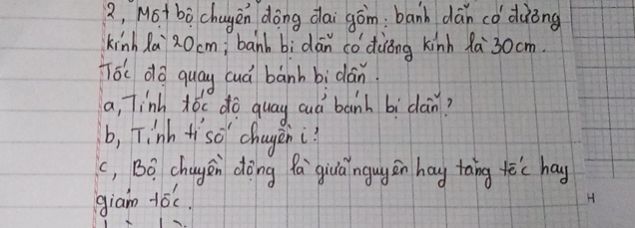 2, Một bộ chuyển động đai gồm: bánh dẫn có đường
kính là 20cm; bánh bị dẫn có đường kính là 30cm.
Tốc độ quay cuả bánh bị dẫn.
a, Tính tốc độ quay cuả bánh bị dẫn?
b, Tính tỉ số chuyền i?
c, Bộ chuyển động là giữ nguyên hay tăng tốc hay
giảm tốc.
H